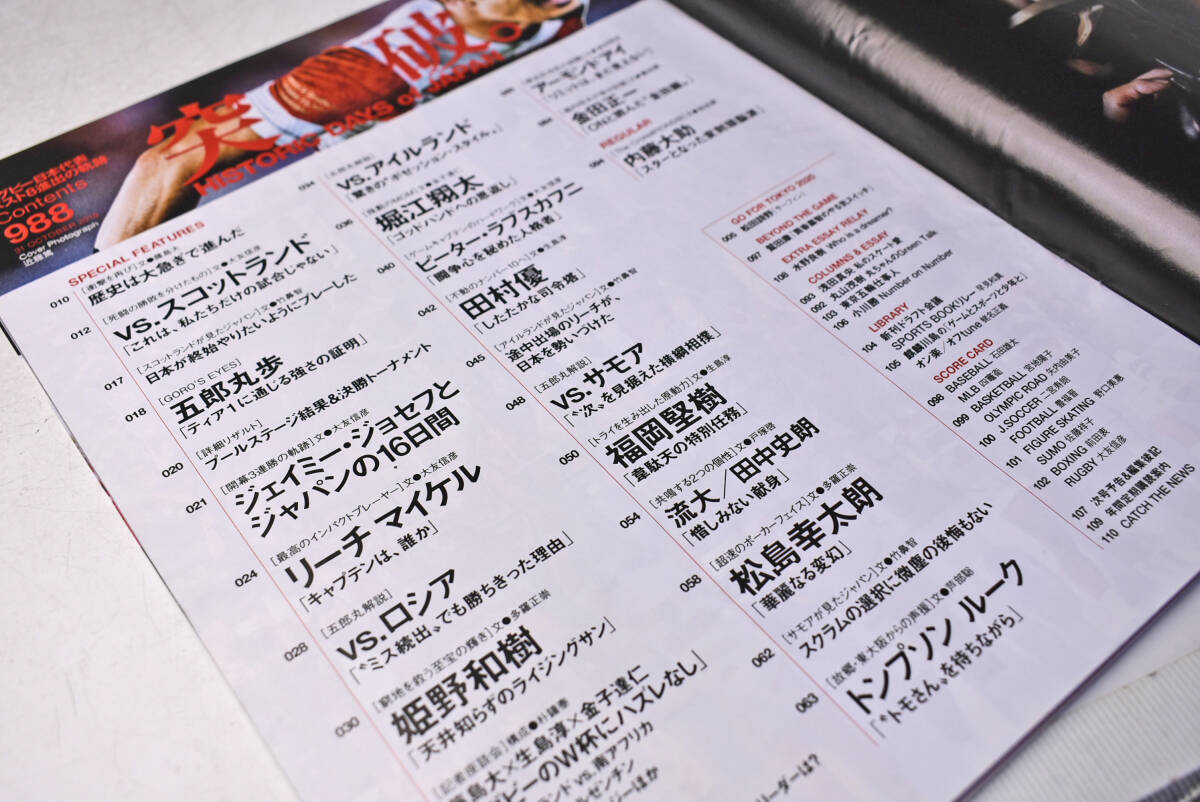 突破。
HISTORIC DAYS OF JAPAN
ラグビー日本代表
ベスト8進出の軌跡
Contents
988
31 OCTOBER 2019
Cover Photograph
近藤篤
SPECIAL FEATURES
010
歴史は大急ぎで進んだ
012
[死闘の勝敗を分けたもの] 文●大友信彦
vs.スコットランド
「これは、私たちだけの試合じゃない」
017
[スコットランドが見たジャパン] 文●竹鼻智
日本が終始やりたいようにプレーした
018
[GORO'S EYES]
五郎丸歩
「ティア1に通じる強さの証明」
020
[詳細リザルト]
プールステージ結果&決勝トーナメント
021
[開幕3連勝の軌跡] 文●大友信彦
ジェイミー・ジョセフと
ジャパンの16日間
024
[最高のインパクトプレーヤー] 文●大友信彦
リーチ マイケル
「キャプテンは、誰か」
028
[五郎丸解説]
vs.ロシア
「“ミス続出”でも勝ちきった理由」
030
[窮地を救う至宝の輝き] 文●多羅正崇
姫野和樹
「天井知らずのライジングサン」
[記者座談会] 構成●朴鐘泰
大×生島淳×金子達仁
ビーのW杯にハズレなし」
ランドvs.南アフリカ
034
[五郎丸解説]
vs.アイルランド
「驚きの“ポゼッション・スタイル”」
036
堀江翔太
「ゴッドハンドへの恩返し」
040
ピーター・ラブスカフニ
「闘争心を秘めた人格者」
042
[不動のナンバー10へ] 文●生島淳
田村優
「したたかな司令塔」
045
[アイルランドが見たジャパン] 文●竹鼻智
途中出場のリーチが、
日本を勢いづけた
048
[五郎丸解説]
vs.サモア
「“次”を見据えた横綱相撲」
050
[トライを生み出した原動力] 文●生島淳
福岡堅樹
「韋駄天の特別任務」
054
[共鳴する2つの個性] 文●戸塚啓
流大/田中史朗
「惜しみない献身」
058
[超速のポーカーフェイス] 文●多羅正崇
松島幸太朗
「華麗なる変幻」
062
[サモアが見たジャパン] 文●竹鼻智
スクラムの選択に微塵の後悔もない
063
[故郷・東大阪からの声援] 文●芦部聡
トンプソン ルーク
「“トモさん”を待ちながら」
リーダーは?
アーモンドアイ
金田正一
REGULAR
094
内藤大助
GO FOR TOKYO 2020
005
BEYOND THE GAME
097
EXTRA ESSAY RELAY
108
水野良樹 Who is a dreamer?
COLUMNS & ESSAY
093
浅田真央 私のスケート愛
092
丸山茂樹 丸ちゃんのGreen Talk
103
東京五輪仕事人
106
小川勝 Number on Number
LIBRARY
104
新刊ドラフト会議
SPORTS BOOKリレー 早見和真
105
オフ楽/オフtune
SCORE CARD
098
BASEBALL 石田雄太
MLB 四竈衛
099
BASKETBALL 宮地陽子
OLYMPIC ROAD 矢内由美子
100
J.SOCCER 二宮寿朗
FOOTBALL 豊福晋
101
FIGURE SKATING 野口美惠
SUMO 佐藤祥子
102
BOXING 前田衷
RUGBY 大友信彦
107 次号予告&編集後記
109 年間定期購読案内
110 CATCH THE NEWS